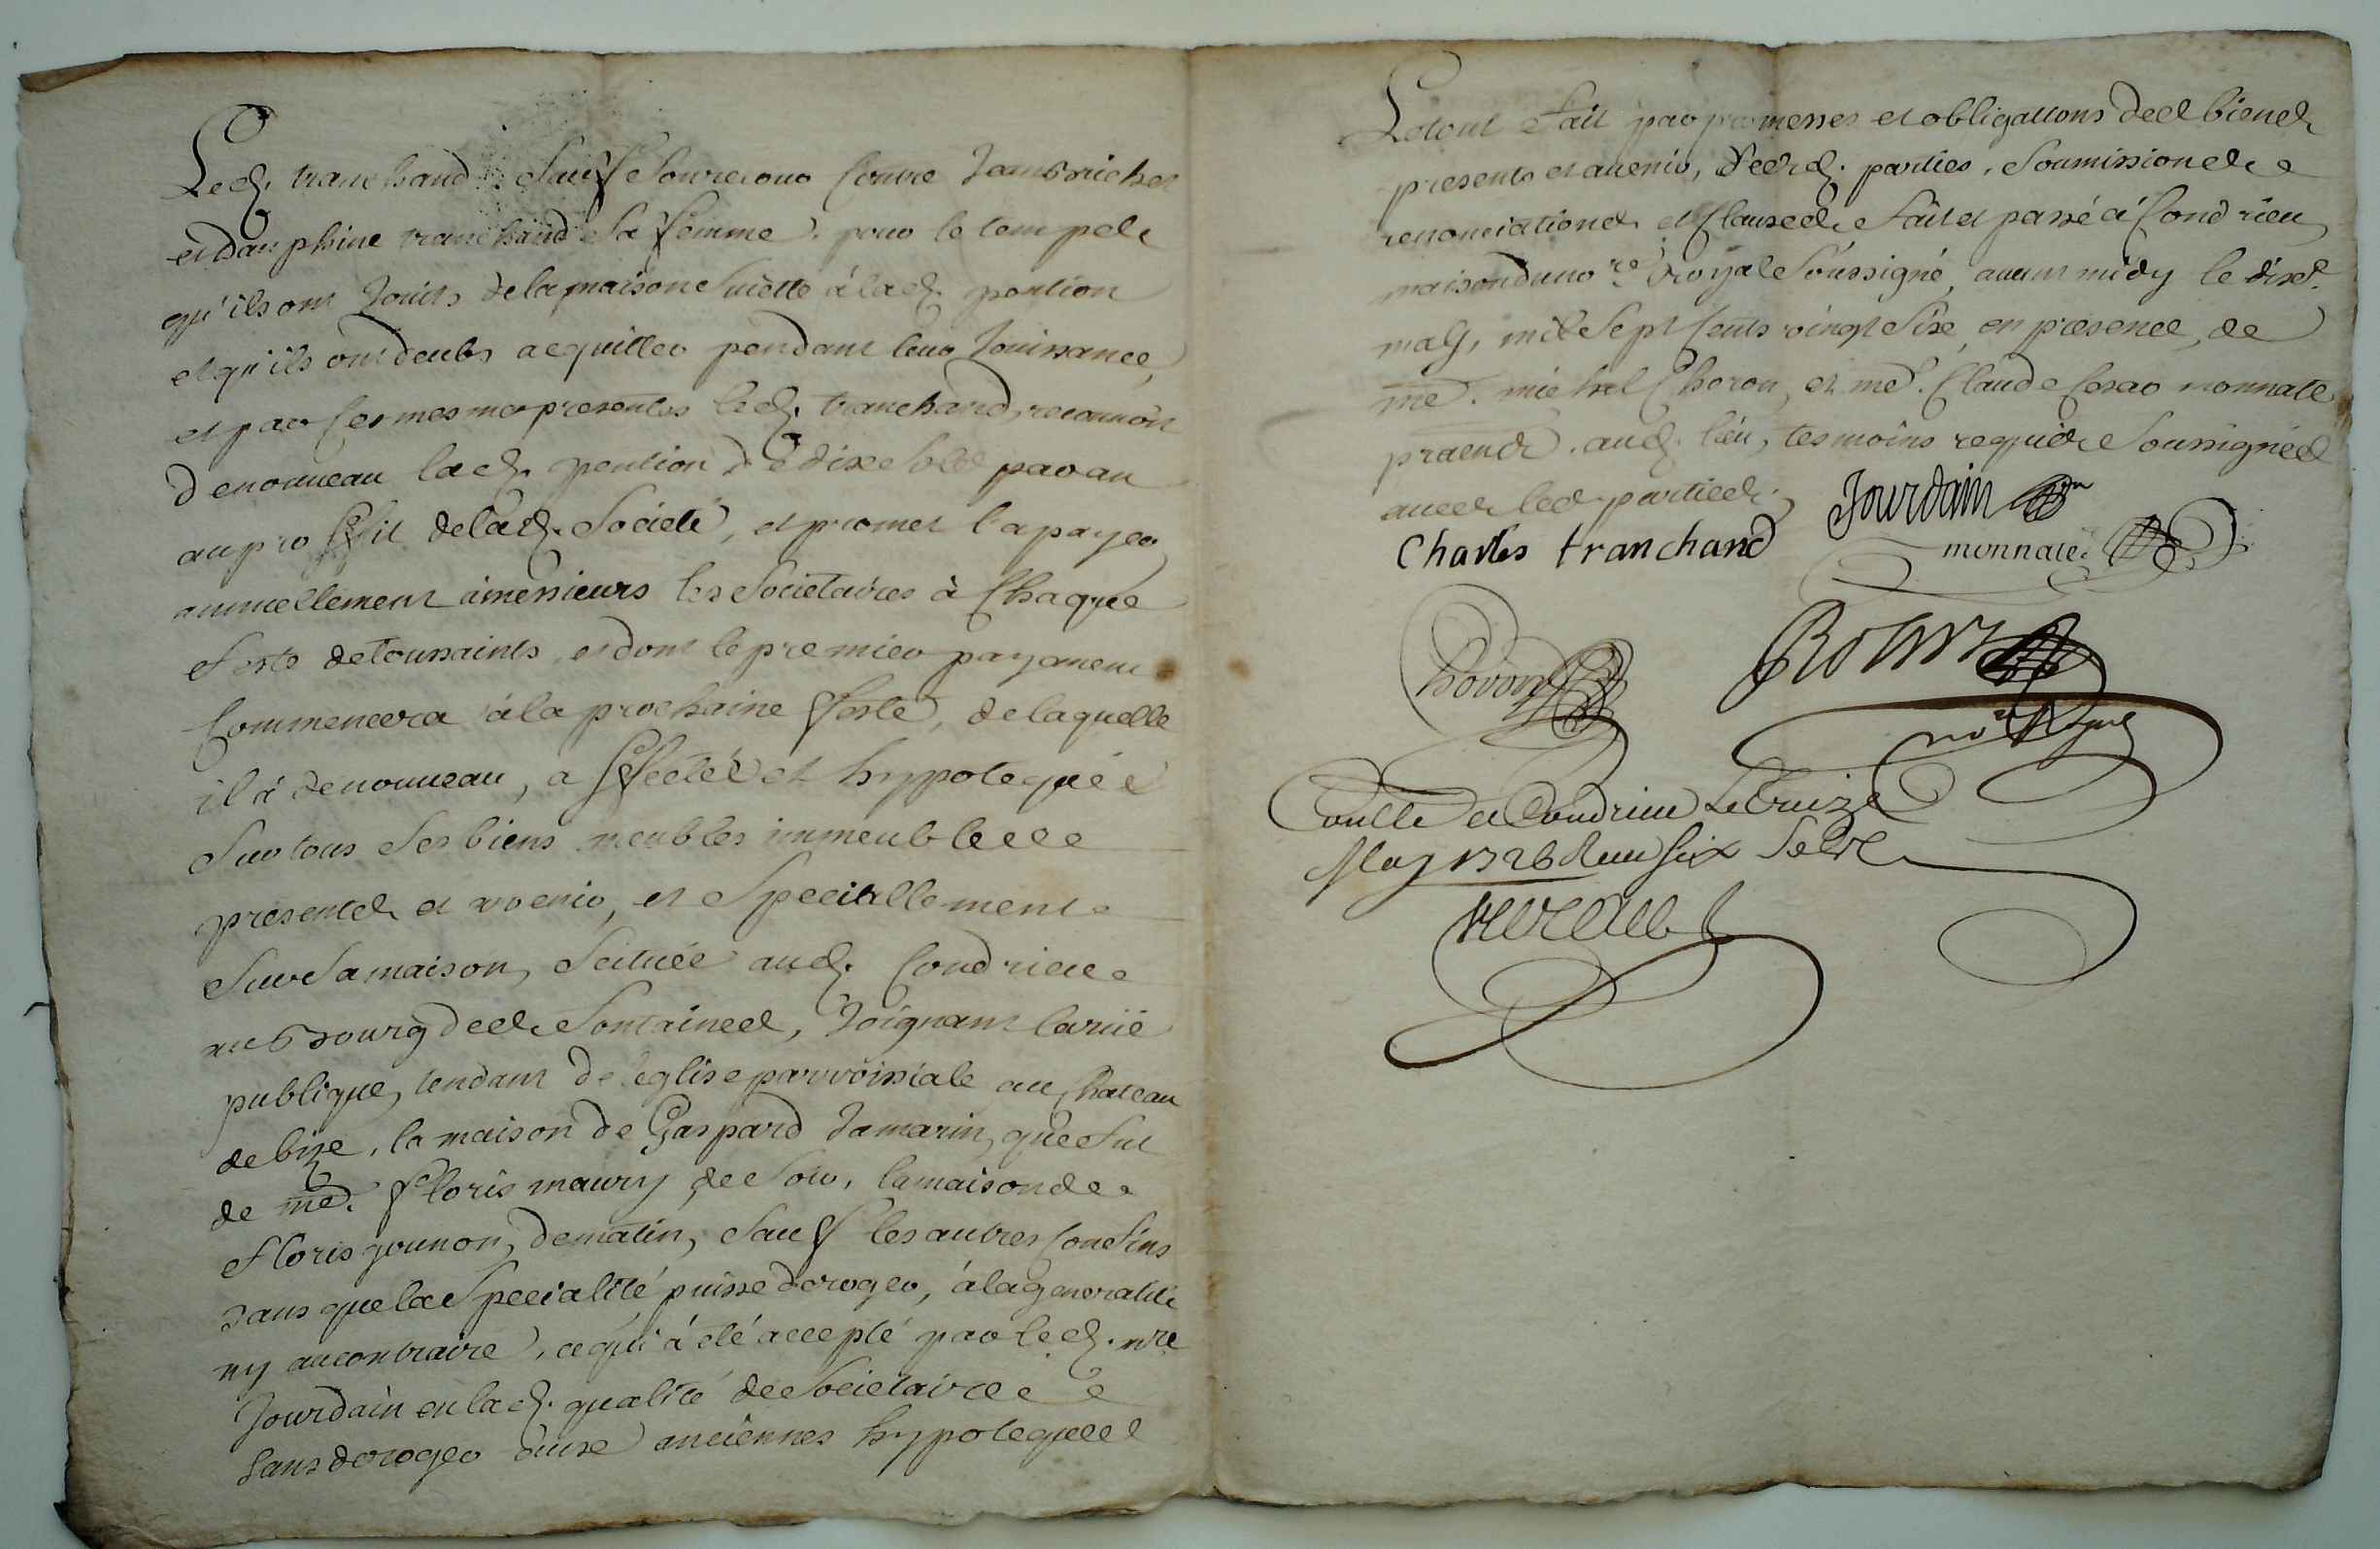 Led. tranchand sauf son recour contre Jean brichet
et dauphine tranchand sa femme, pour le temps de
qu'ils ont Jouits de la maison suiette à lad. pention
et qu'ils ont deubs acquitter pendant leur Jouissance,
et par ces mesmes presentes led. tranchand, reconnoit
de nouveau lad. pention de dix sols par an
au proffit de lad. Societé, et promet la payer
annuellement à messieurs les Societaires à Chaque
feste de toussaints, et dont le premier payement
Commencera à la prochaine feste, de laquelle
il à de nouveau, affectée et hypotequée
sur tous ses biens meubles immeubles
presents et avenir, et speciallement
sur sa maison, scituée aud. Condrieu
au bourg des fontaines, Joignant la rüe
publique, tendant de léglise parroissiale au Chateau
de bize, la maison de Gaspard Jamarin, que fut
de me. floris maury de soir, la maison de
floris gounon, de matin, sauf les autres confins
sans que la specialité puisse deroger, à la generalité
ny au contraire, ce qui à été accepté par led. mre
Jourdain en lad. qualité de Societaire
sans deroger aux anciennes hypoteques
Le tout fait par promesses et obligations des biens
presents et avenir, desd. parties, soumissions
renonciations et clauses fait et passé à Condrieu
maison du nore royal soussigné, avant midy le dix
may, mil sept cents vingt six, en presence, de
me. michel Choron, et me. Claude Cesar monnate
praend. aud. lieu, tesmoins requis soussignés
avec led. parties
Jourdain
Charles tranchand
monnate
Choron
no. Royal
Conllé a Condrieu Le treize
May 1726 Receu six sols